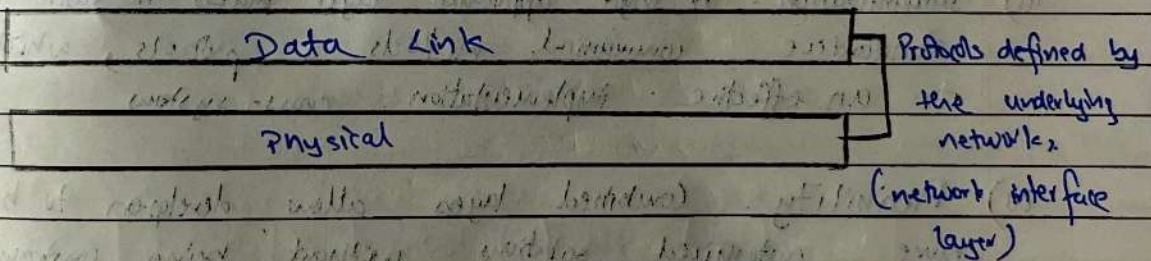 Data Link
Physical
Protocols defined by
the underlying
networks
(network interface
layer)